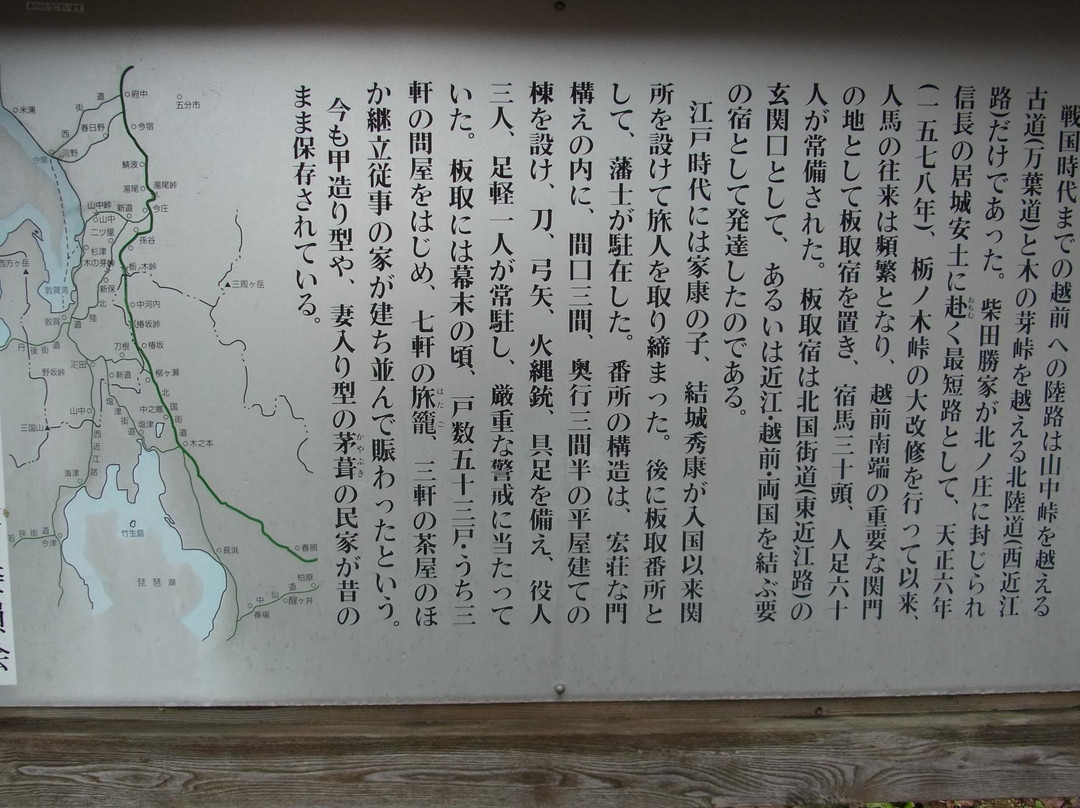 戦国時代までの越前への陸路は山中峠を越える
古道(万葉道)と木の芽峠を越える北陸道(西近江
路)だけであった。柴田勝家が北ノ庄に封じられ
信長の居城安土に赴く最短路として、天正六年
おもむ
(一五七八年)、栃ノ木峠の大改修を行って以来、
人馬の往来は頻繁となり、越前南端の重要な関門
の地として板取宿を置き、宿馬三十頭、人足六十
人が常備された。板取宿は北国街道(東近江路)の
玄関口として、あるいは近江・越前・両国を結ぶ要
の宿として発達したのである。
江戸時代には家康の子、結城秀康が入国以来関
所を設けて旅人を取り締まった。後に板取番所と
して、藩士が駐在した。番所の構造は、宏荘な門
構えの内に、間口三間、奥行三間半の平屋建ての
棟を設け、刀、弓矢、火縄銃、具足を備え、役人
三人、足軽一人が常駐し、厳重な警戒に当たって
いた。板取には幕末の頃、戸数五十三戸・うち三
軒の問屋をはじめ、七軒の旅籠、三軒の茶屋のほ
はたご
か継立従事の家が建ち並んで賑わったという。
今も甲造り型や、妻入り型の茅葺の民家が昔の
かやぶき
まま保存されている。
府中
五分市
米浦
街道
西
春日野
今宿
今泉
河野
鯖波
湯尾
湯尾峠
山中峠
山中
新道
今庄
二ツ屋
孫谷
杉津
木の芽峠
栃ノ木峠
西方ヶ岳
新保
三周ヶ岳
敦賀湾
敦賀
北
陸
道
中河内
椿坂峠
椿坂
丹後街道
刀根
疋田
野坂峠
新道
柳ヶ瀬
塩津街道
北国街道
山中
中之郷
塩津
三国山
木之本
西近江路
海津
竹生島
若狭街道
今津
長浜
春照
柏原
琵琶湖
中仙道
醒ヶ井
番場